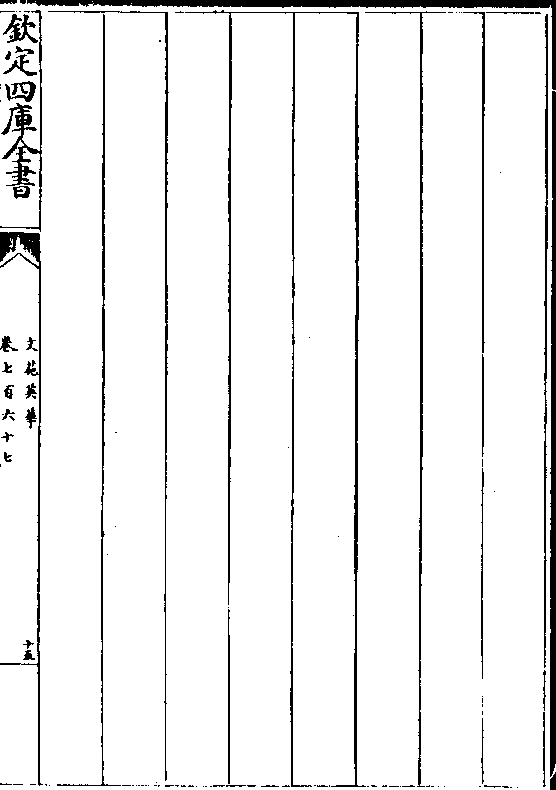 欽定四庫全書
文苑英華
卷七百六十七
十五